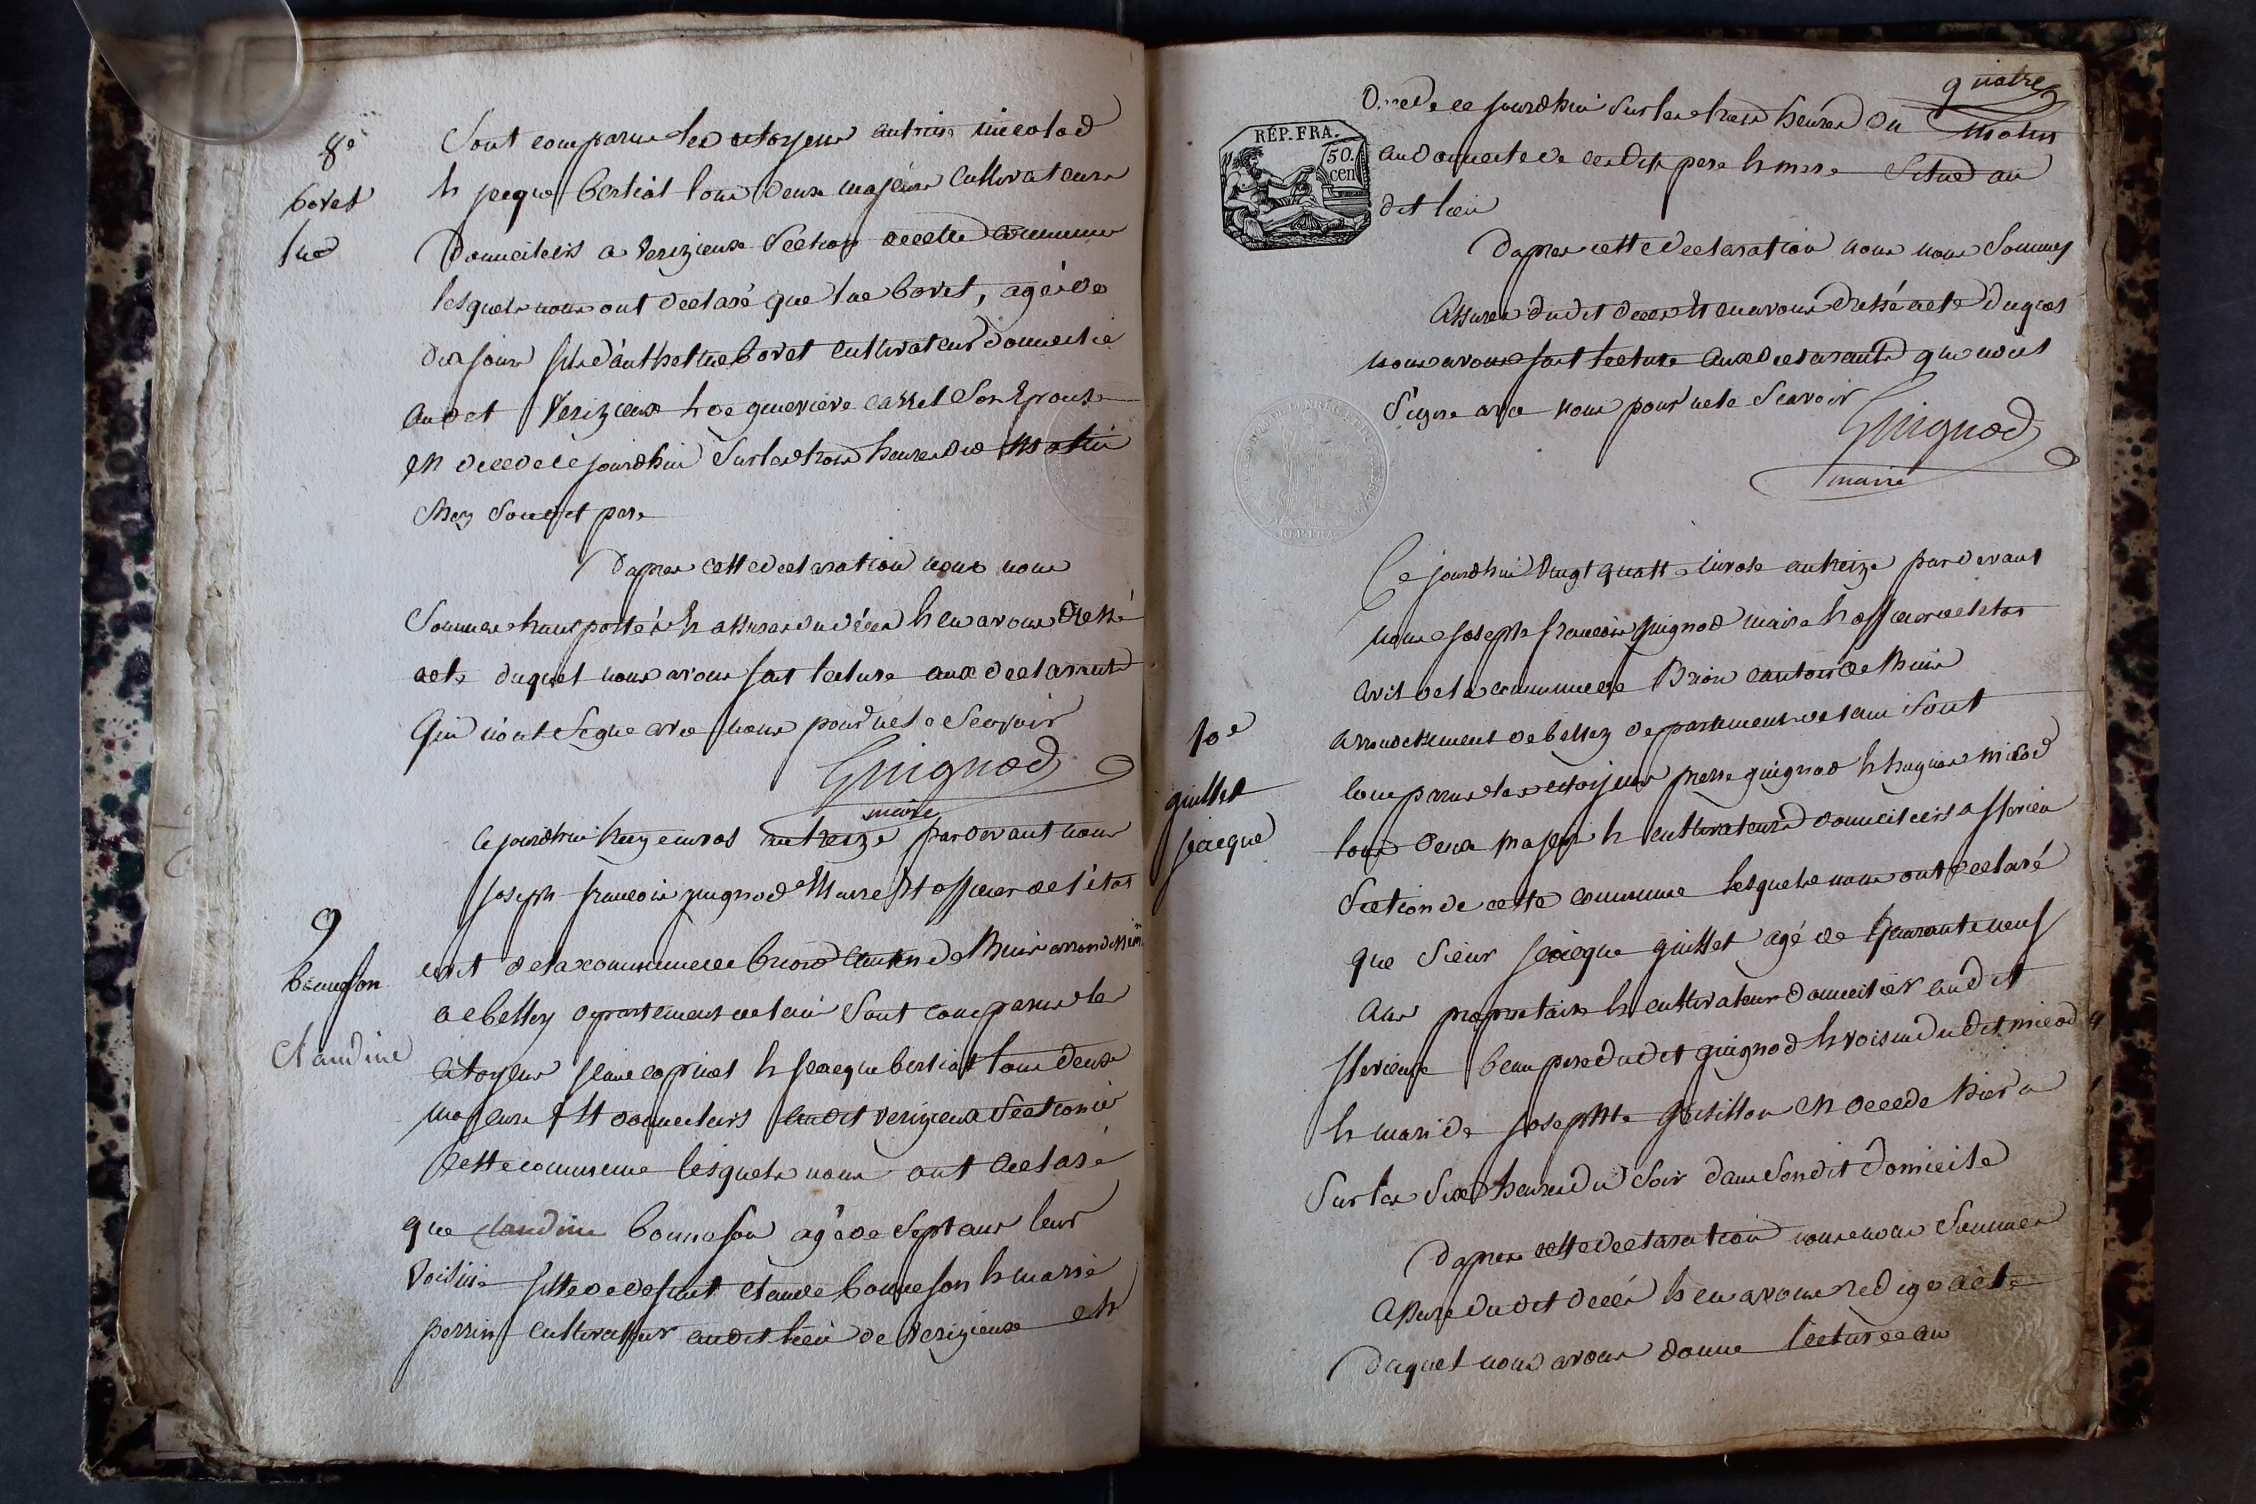 8e
bovet
luc
Sont comparus les citoyens antoine micolod
et jacque berliat tous deux majeurs cultivateurs
domicileis a Verizieux section decette commune
lesquels nous ont declaré que luc bovet, agé de
dix jours fils d'anthelme bovet cultivateur domicilié
audit Verizieux et de genevieve cassel Son Epouse
En decede ce jourdhui Sur les trois heures du Matin
chez Sondit pere
Dapres cette declaration nous nous
Sommes transportés et assures du décés et en avons dressé
acte duquel nous avons fait lecture aux declarants
Qui n'ont Signe avec nous pour ne le Scavoir
Guignod
maire
9
bonneson
Claudine
Cejourdhui treize nivos an treize pardevant nous
joseph francois guignod Maire Et officier de l'état
civil de la commune de briord canton de Lhuis arrondissemt
de belley departement de lain Sont comparus les
citoyens et jacque berliat tous deux
majeurs Et domicileis audit verizieux Section de
Cette commune lesquels nous ont declaré
que claudine bonneson agé de Sept ans leur
Voisine fille de defunt claude bonneson et marie
perrin cultivateur audit lieu de Verizieux est
quatre
RÉP. FRA.
50.
cen
Decede ce jourdhui Sur les trois heures du Matin
au domicile de cesdits pere et mere Situé au
dit lieu
Dapres cette declaration nous nous Sommes
Assures dudit deces Et en avons dressé acte duquel
nous avons fait lecture aux declarants qui n'ont
Signe avec nous pour ne le Scavoir
Guignod
maire
REP.FRA
10e
guillet
jacque
Ce jourdhui vingt quatre nivose an treize pardevant
nous joseph francois guignod maire et officier de letat
civil de la commune de Briord canton de Lhuis
arrondissement de belley departement de lain Sont
comparus les citoyens pierre guignod et hugues micod
tous deux majeurs et cultivateurs domicileis a
Section de cette commune lesquels nous ont declaré
que Sieur jacque guillet agé de quarante neuf
ans proprietaire et cultivateur domicilier audit
beau pere dudit guignod et voisin dudit micod
et mari de josephte En decede hier a
Sur les Six heures du Soir dans Sondit Domicile
Dapres cette declaration nous nous Sommes
Assure dudit decés et en avons redigé acte
duquel nous avons donne lecture au